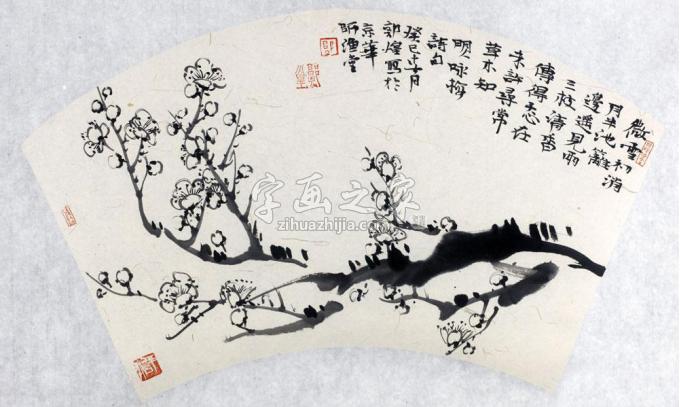 微雪初消
月半池籬
邊遥見兩
三枝清香
傳得天心在
未許尋常
草木知
明咏梅
詩句
癸巳月
郭寫於
京華
師漁堂
字画之家
zihuazhijia.com